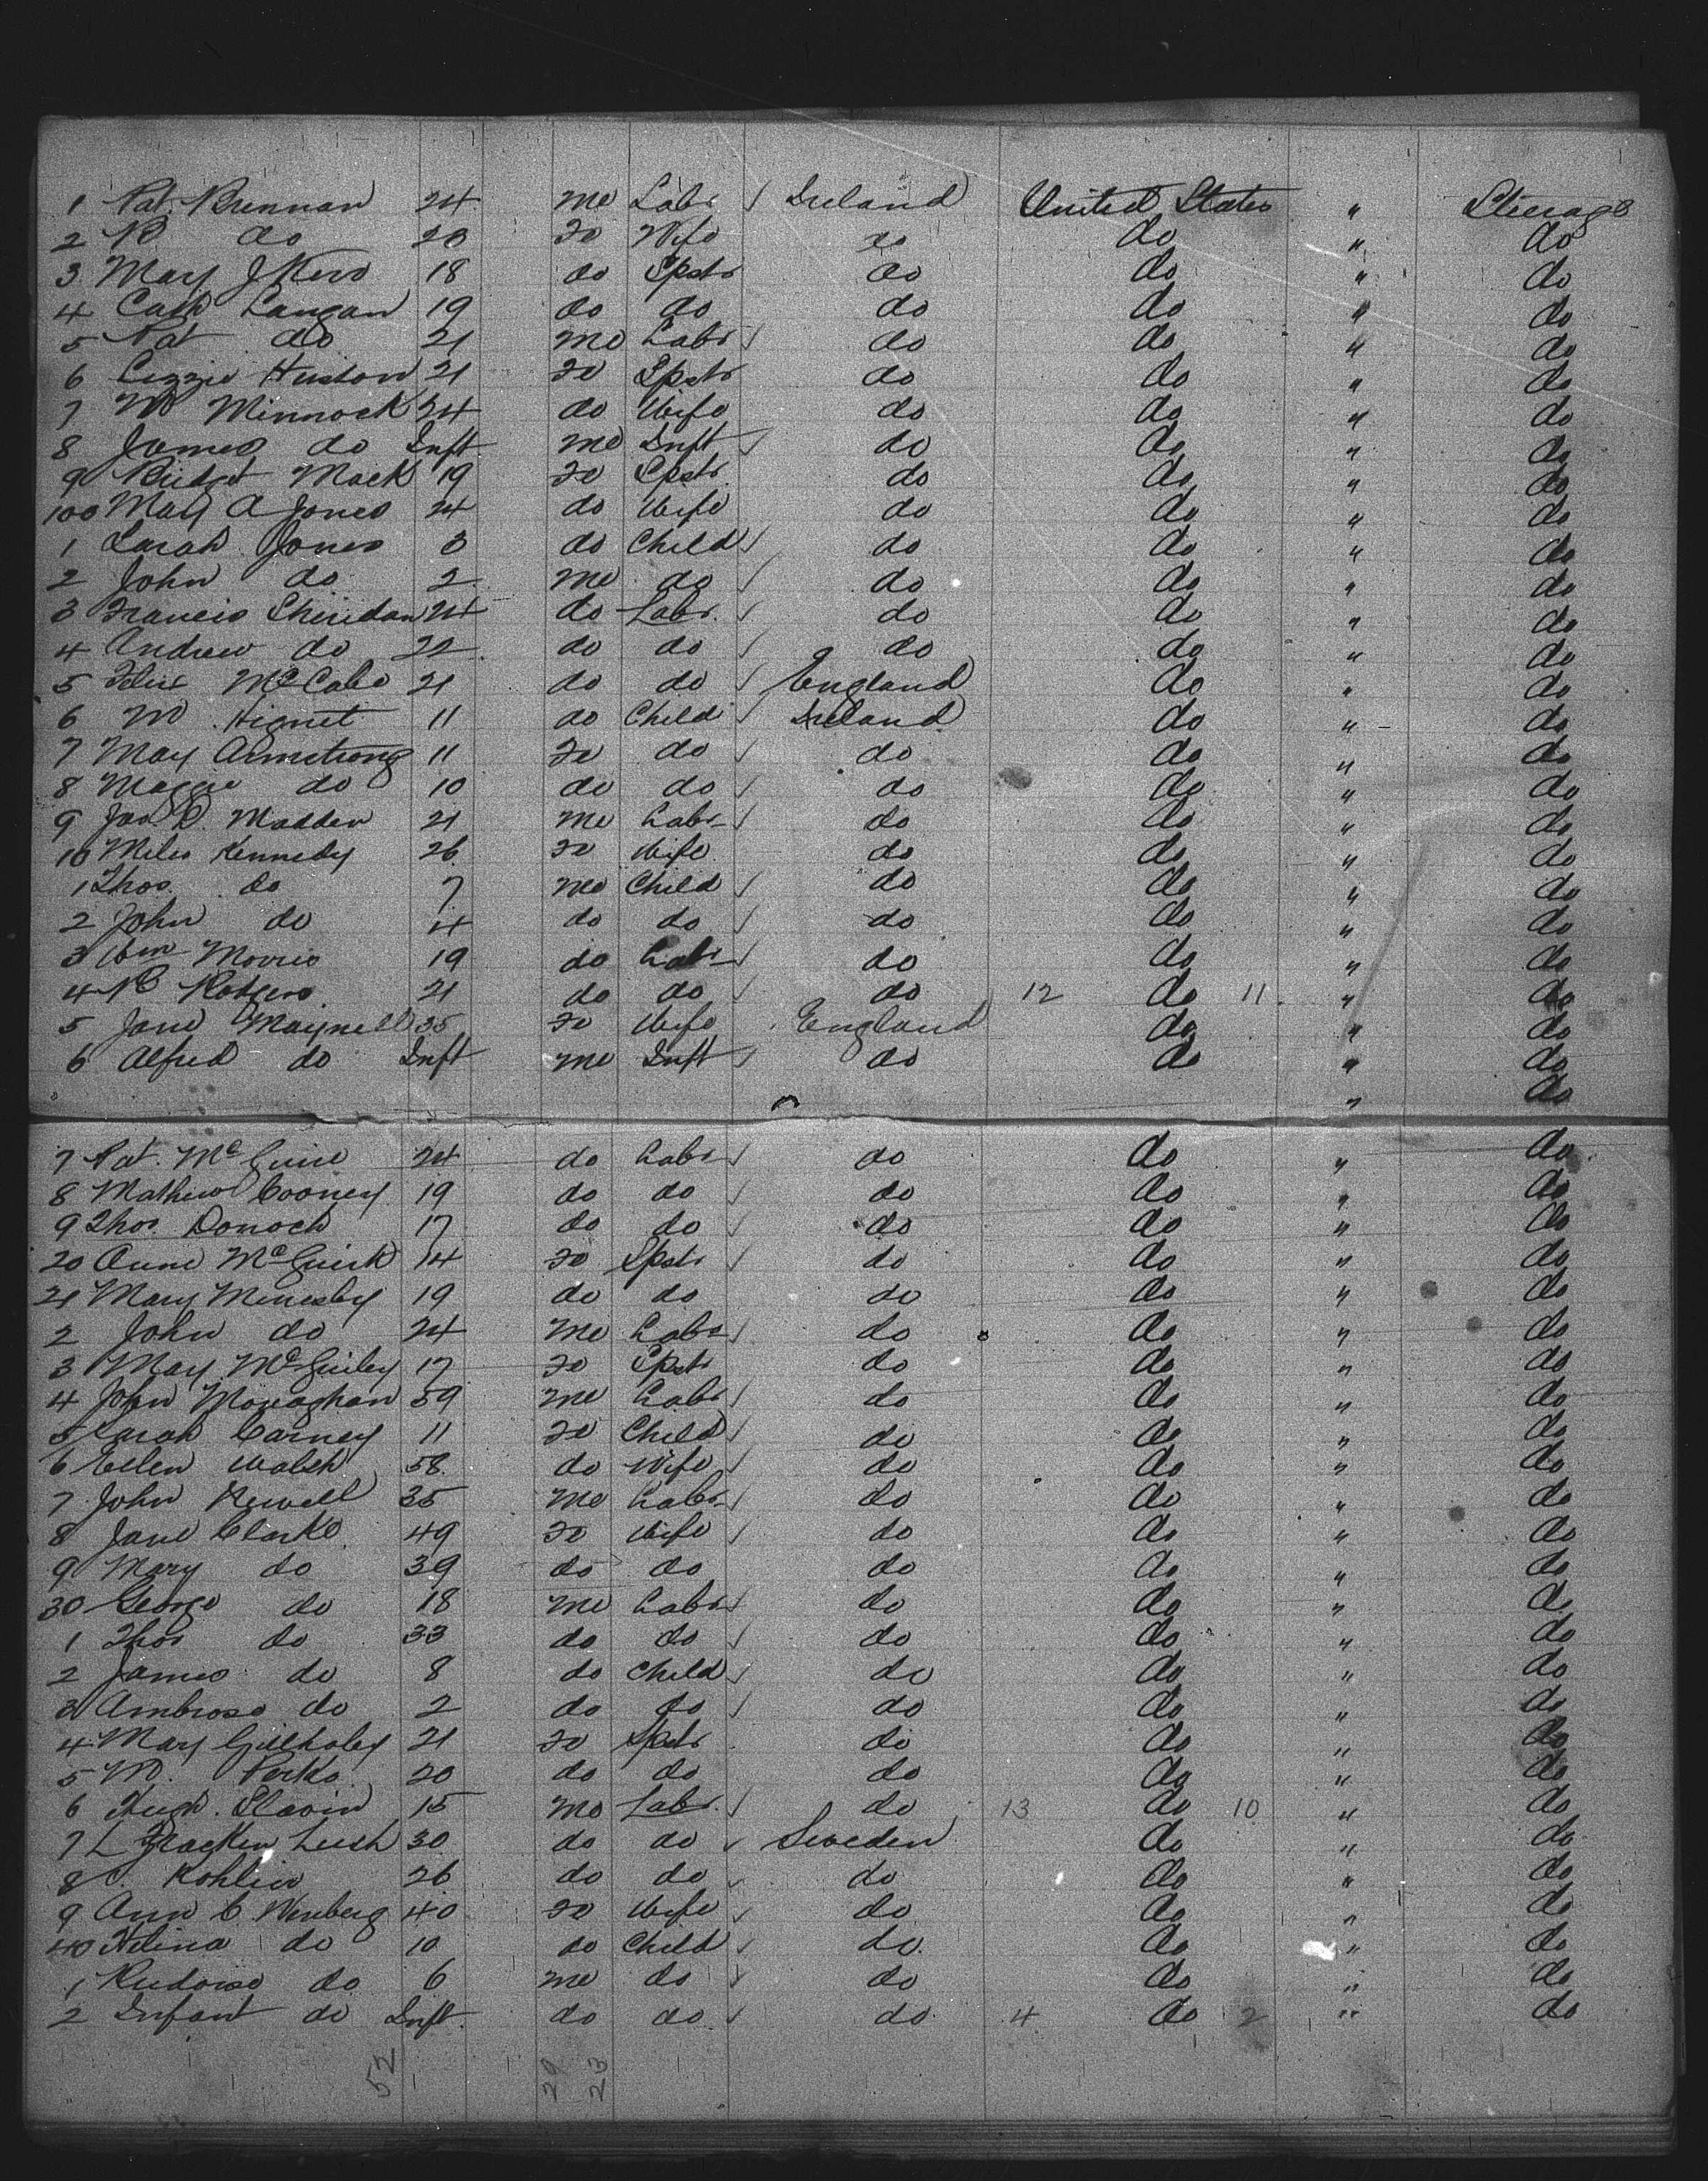 1 Pat. Brennan 24 Me Labr / Ireland United States " Steerage
2 B do 20 Fe Wife do do " do
3 May J Kero 18 do Spstr do do " do
4 Cath Langan 19 do do do do " do
5 Pat do 21 Me Labr / do do " do
6 Lizzie Huston 21 Fe Spstr do do " do
7 M Minnock 24 do Wife do do " do
8 James do Inft Me Inft / do do " do
9 Bridget Mack 19 Fe Spstr do do " do
100 May A Jones 24 do Wife do do " do
1 Sarah Jones 3 do Child / do do " do
2 John do 2 Me do / do do " do
3 Francis Sheridan 24 do Labr. / do do " do
4 Andrew do 22 do do / do do " do
5 Felix McCabe 21 do do / England do " do
6 M Hignet 11 do Child / Ireland do " do
7 May Armstrong 11 Fe do / do do " do
8 Maggie do 10 do do / do do " do
9 Jas. D. Madden 21 Me Labr / do do " do
10 Miles Kennedy 26 Fe Wife do do " do
1 Thos. do 7 Me Child / do do " do
2 John do 4 do do / do do " do
3 Wm Morris 19 do Labr / do do " do
4 Rodgers 21 do do / do 12 do 11 " do
5 Jane Maynell 35 Fe Wife England do " do
6 Alfred do Inft Me Inft / do do " do
" do
7 Pat. McGuire 24 do Labr / do do " do
8 Mathew Cooney 19 do do / do do " do
9 Thos. Donoch 17 do do / do do " do
20 Anne McGuirk 14 Fe Spstr / do do " do
21 Mary 19 do do do do " do
2 John do 24 Me Labr / do do " do
3 May 17 Fe Spstr do do " do
4 John Monaghan 59 Me Labr / do do " do
5 Sarah Carney 11 Fe Child / do do " do
6 Ellen Walsh 58 do Wife / do do " do
7 John Newell 35 Me Labr / do do " do
8 Jane Clarke 49 Fe Wife / do do " do
9 Mary do 39 do do do do " do
30 George do 18 Me Labr / do do " do
1 Thos do 33 do do / do do " do
2 James do 8 do Child / do do " do
3 Ambrose do 2 do do / do do " do
4 Mary Gilholey 21 Fe Spstr do do " do
5 M. Perks 20 do do do do " do
6 Hugh. Slavin 15 Me Labr. / do 13 do 10 " do
7 L 30 do do / Sweden do " do
8 Kohlin 26 do do do do " do
9 Ann C Wenberg 40 Fe Wife / do do " do
40 Helina do 10 do Child / do do " do
1 do 6 Me do / do do " do
2 Infant do Inft do do / do 4 do 2 " do
52 29 23